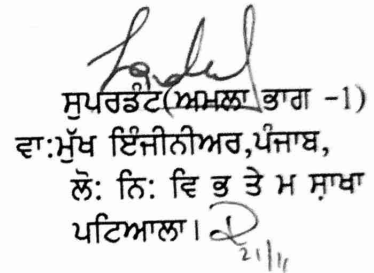 ਸੁਪਰਡੰਟ(ਅਮਲਾ ਭਾਗ -1)
ਵਾ:ਮੁੱਖ ਇੰਜੀਨੀਅਰ,ਪੰਜਾਬ,
ਲੋ: ਨਿ: ਵਿ ਭ ਤੇ ਮ ਸ਼ਾਖਾ
ਪਟਿਆਲਾ।
21/11